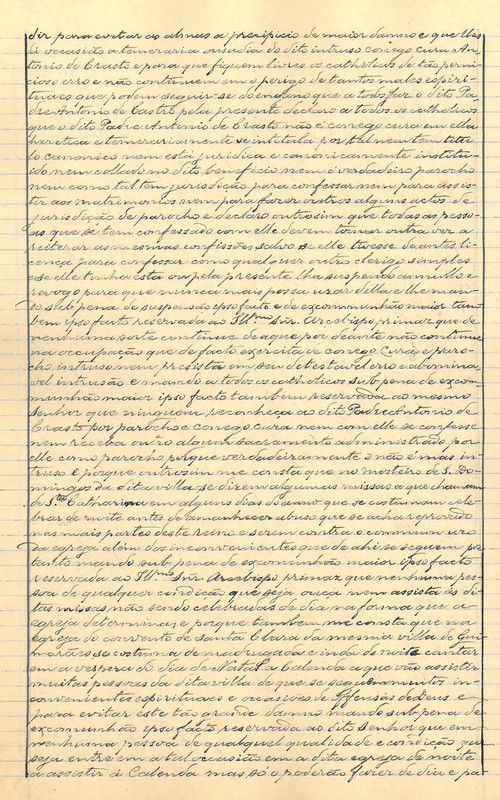 dir para evitar as almas o precipicio de maior damno e que lhes
dê occasião a temeraria ousadia do dito intruso conego cura An-
tonio de Crasto e para que fiquem livres os catholicos de tão perni-
cioso erro e não continuem em o perigo de tantos males espiri-
tuaes que podem seguir-se do engano que a todos faz o dito Pa-
dre Antonio de Castro pela presente declaro a todos os catholicos
que o dito Padre Antonio de Crasto não é conego cura em ella
heretica e temerariamente se intitula por tal nem tem titu-
lo canonico nem está juridica e canonicamente institui-
do nem collado no dito beneficio nem é verdadeiro parocho
nem como tal tem jurisdição para confessar nem para assis-
tir aos matrimonios nem para fazer outros alguns actos de
jurisdição de parocho e declaro outrosim que todas as pesso-
as que se tem confessado com elle devem tornar outra vez a
reiterar as mesmas confissões salvo se elle tivesse de antes li-
cença para confessar como qualquer outro clerigo simples
e se elle tinha esta ou pela presente lha suspendo annullo e
revogo para que nunca mais possa uzar della e lhe man-
do sub pena de suspensão ipso facto e de excomunhão maior tam-
bem ipso facto reservada ao Illmo Snr. Arcebispo primaz que de
nenhuma sorte continue de aqui por deante não continue
na occupação que de facto exercita de conego Cura e paro-
cho intruso nem presista em seu detestavel erro e abomina-
vel intrusão e mando a todos os catholicos sub pena de exco-
munhão maior ipso facto tambem reservada ao mesmo
senhor que ninguem reconheça ao dito Padre Antonio de
Crasto por parocho e conego cura nem com elle se confesse
nem receba outro algum sacramento administrado por
elle como parocho porque verdadeiramente o não é mas in-
truso e porque outrosim me consta que no mosteiro de S. Do-
mingos da dita villa se dizem algumas missas a que chamam
de Sta Catharina em alguns dias do anno que se costumam cele-
brar de noite antes de amanhecer abuso que se acha reprovado
nas mais partes deste reino e serem contra o commum uso
da egreja além dos inconvenientes que de ahi se seguem por
tanto mando sub pena de excomunhão maior ipso facto
reservada ao Illmo Snr. Arcebispo primaz que nenhuma pes-
soa de qualquer condição que seja ouça nem assista ás di-
tas missas não sendo celebradas de dia na forma que a
egreja determina; e porque tambem me consta que na
egreja do convento de santa Clara da mesma villa de Gui-
marães se costuma de madrugada e inda de noite cantar
em a vespera do dia de Natal a Calenda a que vão assistir
muitas pessoas da dita villa de que se seguem muitos in-
convenientes espirituaes e occasiões de offensas de Deus e
para evitar este tão grande damno mando sub pena de
excomunhão ipso facto reservada ao dito senhor que em
nenhuma pessoa de qualquer qualidade e condição que
seja entre em a tal occasião em a dita egreja de noite
a assistir á Calenda mas só o poderão fazer de dia e pa-